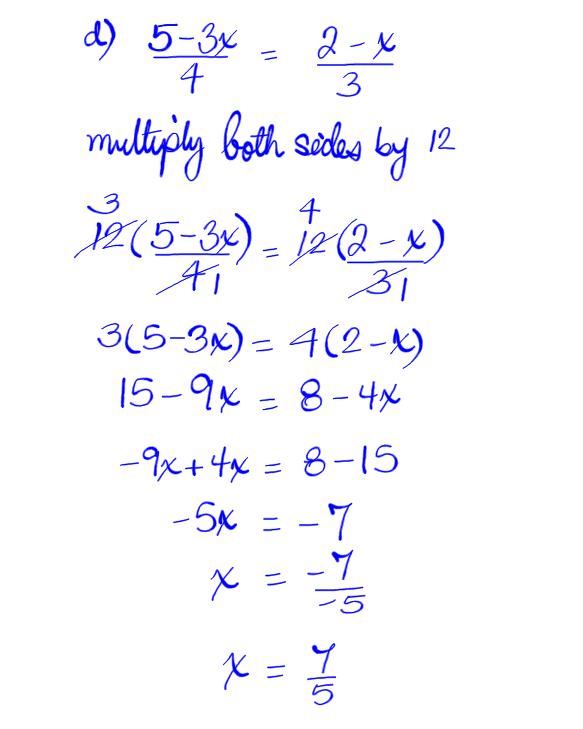 d) (5-3x)/4 = (2-x)/3
multiply both sides by 12
3 4
12(5-3x)/4 1 = 12(2-x)/3 1
3(5-3x) = 4(2-x)
15-9x = 8-4x
-9x+4x = 8-15
-5x = -7
x = -7/-5
x = 7/5